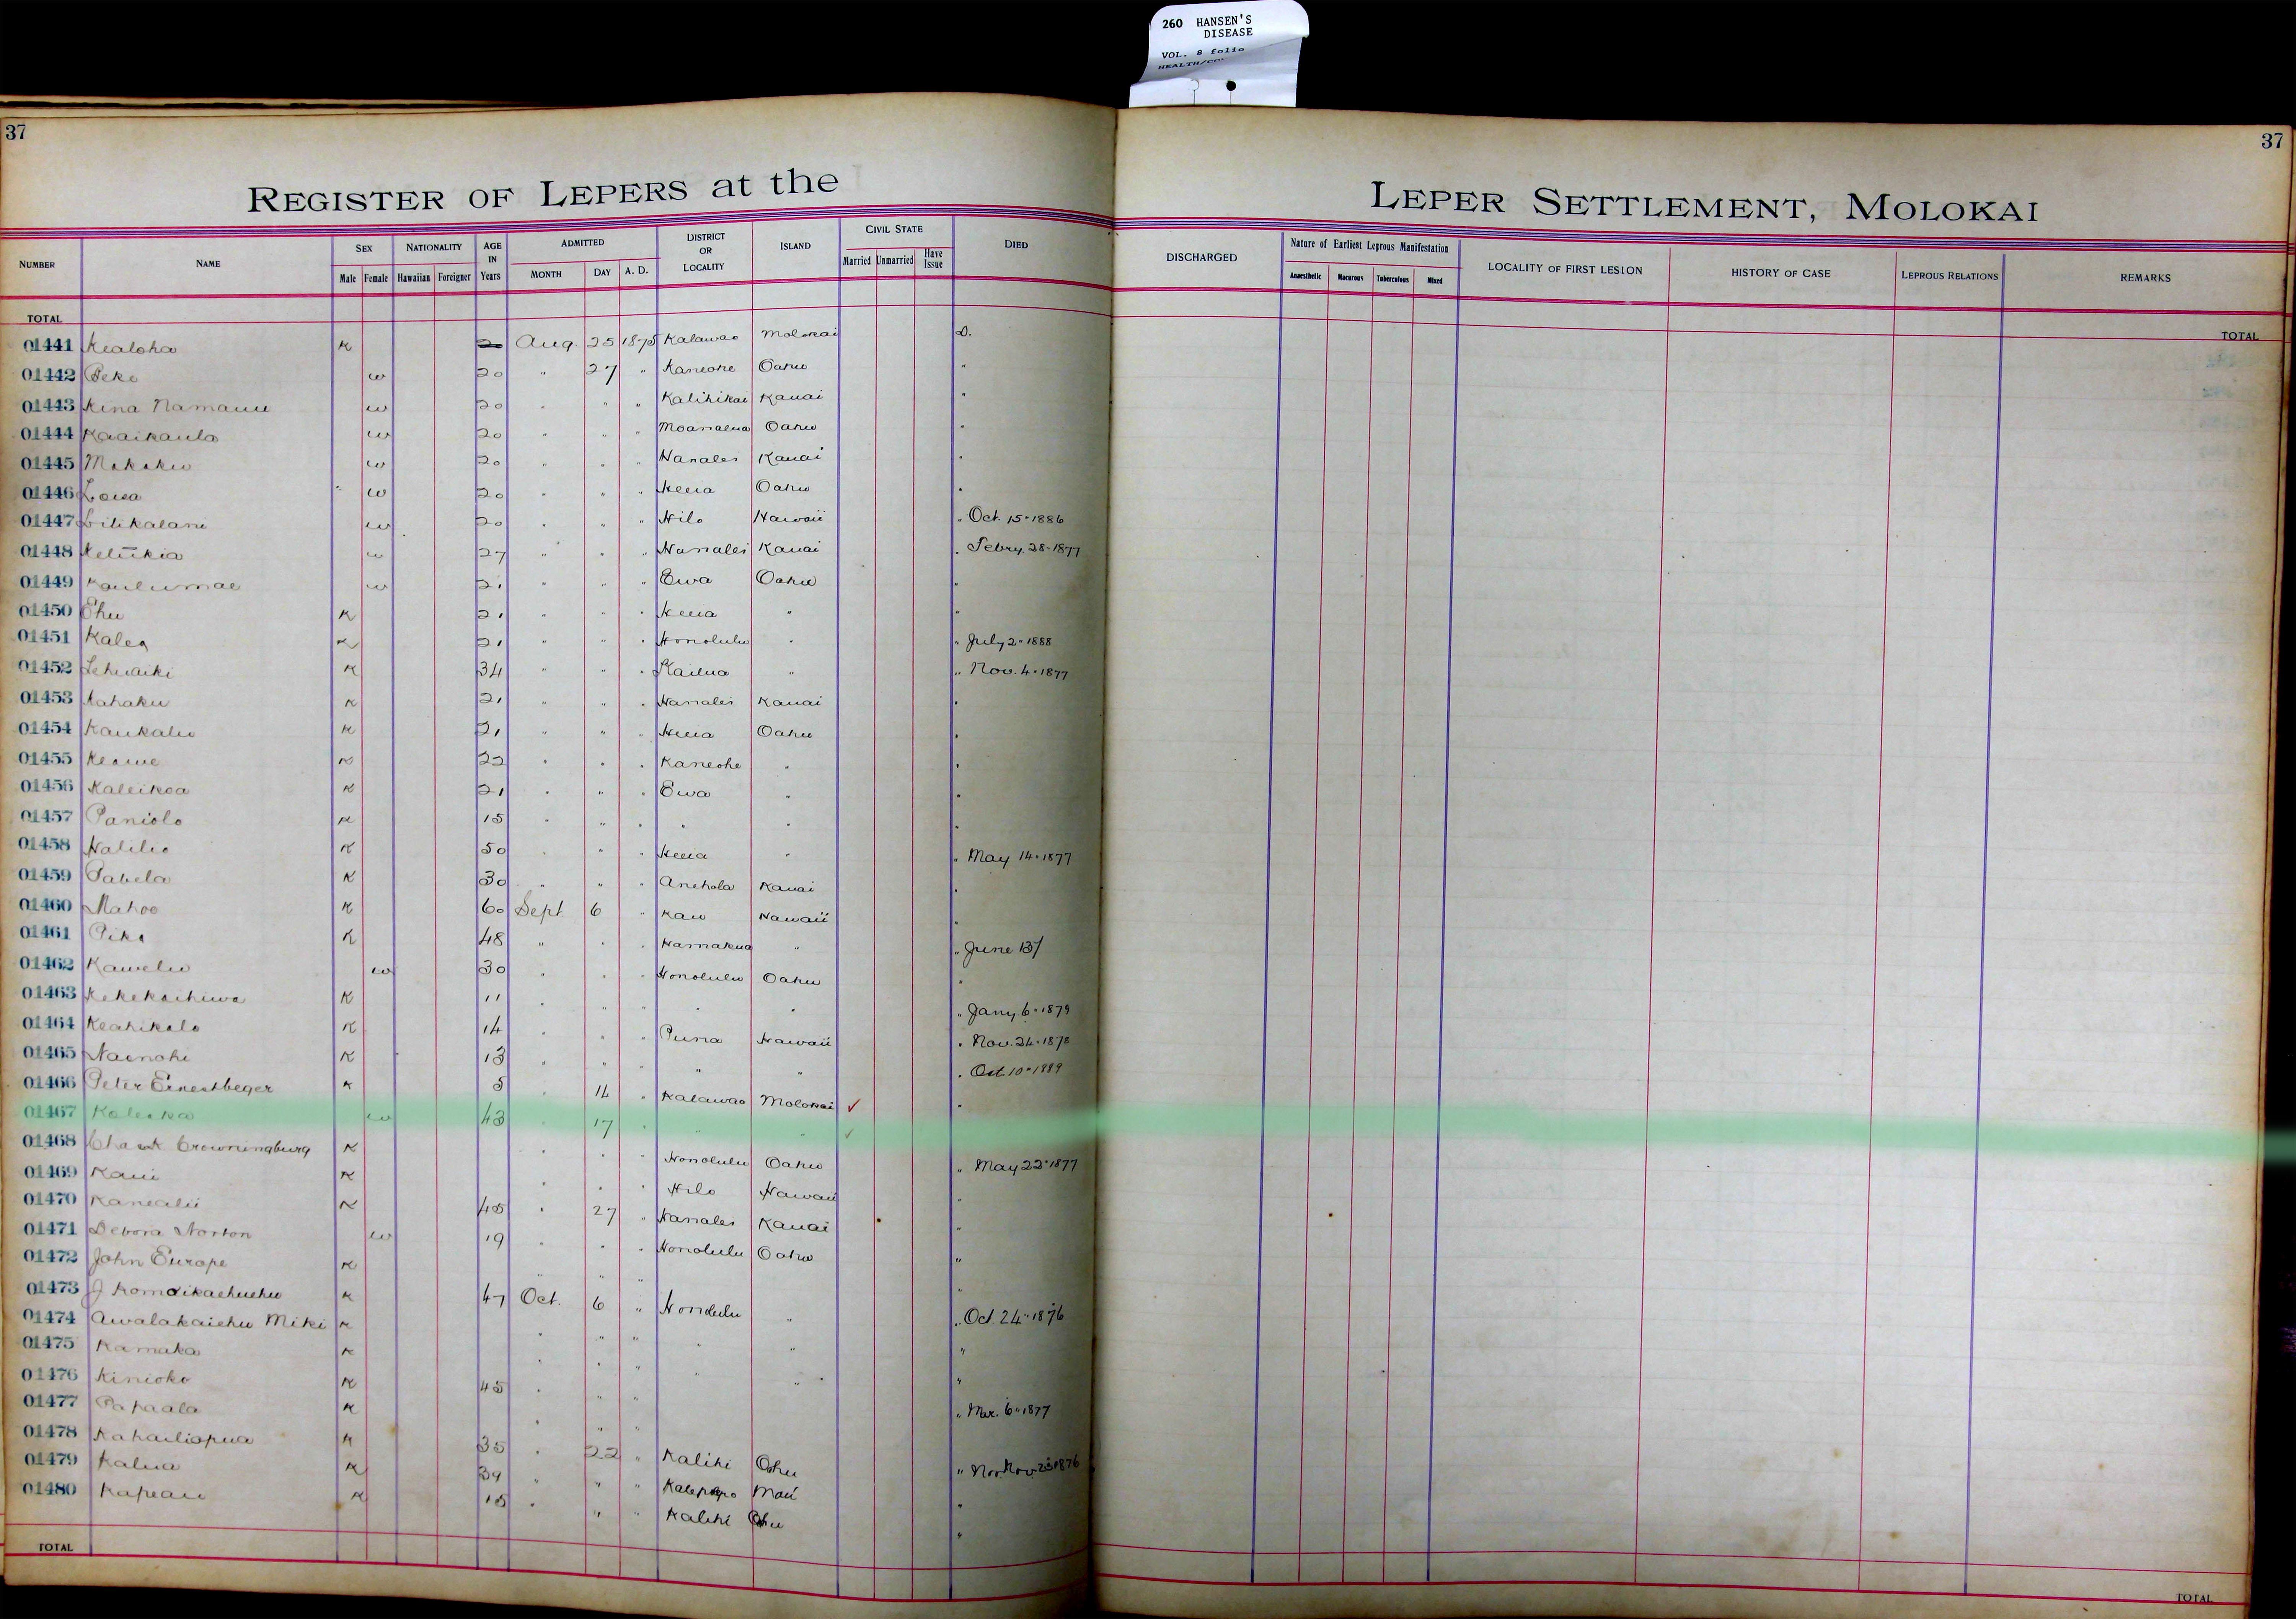 260 HANSEN'S
DISEASE
VOL. 8 folio
37
37
REGISTER OF LEPERS at the LEPER SETTLEMENT, MOLOKAI
NUMBER NAME SEX Male Female NATIONALITY Hawaiian Foreigner AGE IN Years ADMITTED MONTH DAY A. D. DISTRICT OR LOCALITY ISLAND CIVIL STATE Married Unmarried Have Issue DIED DISCHARGED Nature of Earliest Leprous Manifestation Anaesthetic Macurous Tuberculous Mixed LOCALITY OF FIRST LESION HISTORY OF CASE LEPROUS RELATIONS REMARKS
TOTAL TOTAL
01441 Kealoha K 20 Aug. 25 1875 Kalawao Molokai D.
01442 Peke w 20 " 27 " Kaneohe Oahu "
01443 Kina Namauu w 20 " " " Kalihikai Kauai "
01444 Kaaikaula w 20 " " " Moanalua Oahu "
01445 w 20 " " " Hanalei Kauai "
01446 w 20 " " " Heeia Oahu "
01447 Lilikalani w 20 " " " Hilo Hawaii " Oct. 15 " 1886
01448 Keliikia w 27 " " " Hanalei Kauai " Febry. 28 " 1877
01449 Kaulumae w 21 " " " Ewa Oahu "
01450 Ehu K 21 " " " Heeia " "
01451 Kalea K 21 " " " Honolulu " " July 2 " 1888
01452 Lehuaiki K 34 " " " Kailua " " Nov. 4 " 1877
01453 Kahaku K 21 " " " Hanalei Kauai "
01454 Kaukaliu K 21 " " " Heeia Oahu "
01455 Keawe K 22 " " " Kaneohe " "
01456 Kaleikoa K 21 " " " Ewa " "
01457 Paniolo K 15 " " " " " "
01458 Halilio K 50 " " " Heeia " " May 14 " 1877
01459 Pabela K 30 " " " Anehola Kauai "
01460 Mahoe K 60 Sept 6 " Kau Hawaii "
01461 Pika K 48 " " " Hamakua " " June 13/
01462 Kawelu w 30 " " " Honolulu Oahu "
01463 Kekekaihiwa K 11 " " " " " " Jany. 6 " 1879
01464 Keahikolo K 14 " " " Puna Hawaii " Nov. 24 " 1878
01465 Nainohi K 13 " " " " " " Oct 10 " 1889
01466 Peter Ernestbeger K 5 " 14 " Kalawao Molokai ✓ "
01467 Kaleika w 43 " 17 " " " ✓
01468 Crowningburg K " " " Honolulu Oahu " May 22 " 1877
01469 Kaui K " " " Hilo Hawaii "
01470 Kanealii K 45 " 27 " Hanalei Kauai "
01471 Debora Norton w 19 " " " Honolulu Oahu "
01472 John Europe K " " " "
01473 J K 47 Oct. 6 " Honolulu " " Oct. 24 " 1876
01474 Awalakaiehu Miki K " " " " " "
01475 Kamaka K " " " " " "
01476 Kinioko K 45 " " " " Mar. 6 " 1877
01477 Papaala K " " "
01478 Kahailiopua K 35 " 22 " Kalihi Oahu " Nov. 23 1876
01479 Kalua K 34 " " " Kalepolepo Maui "
01480 Kapeau K 15 " " " Kalihi Oahu "
TOTAL TOTAL